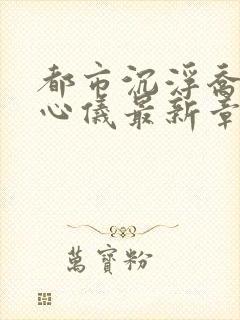 都市沉浮喬
心儀最新章
萬寶粉